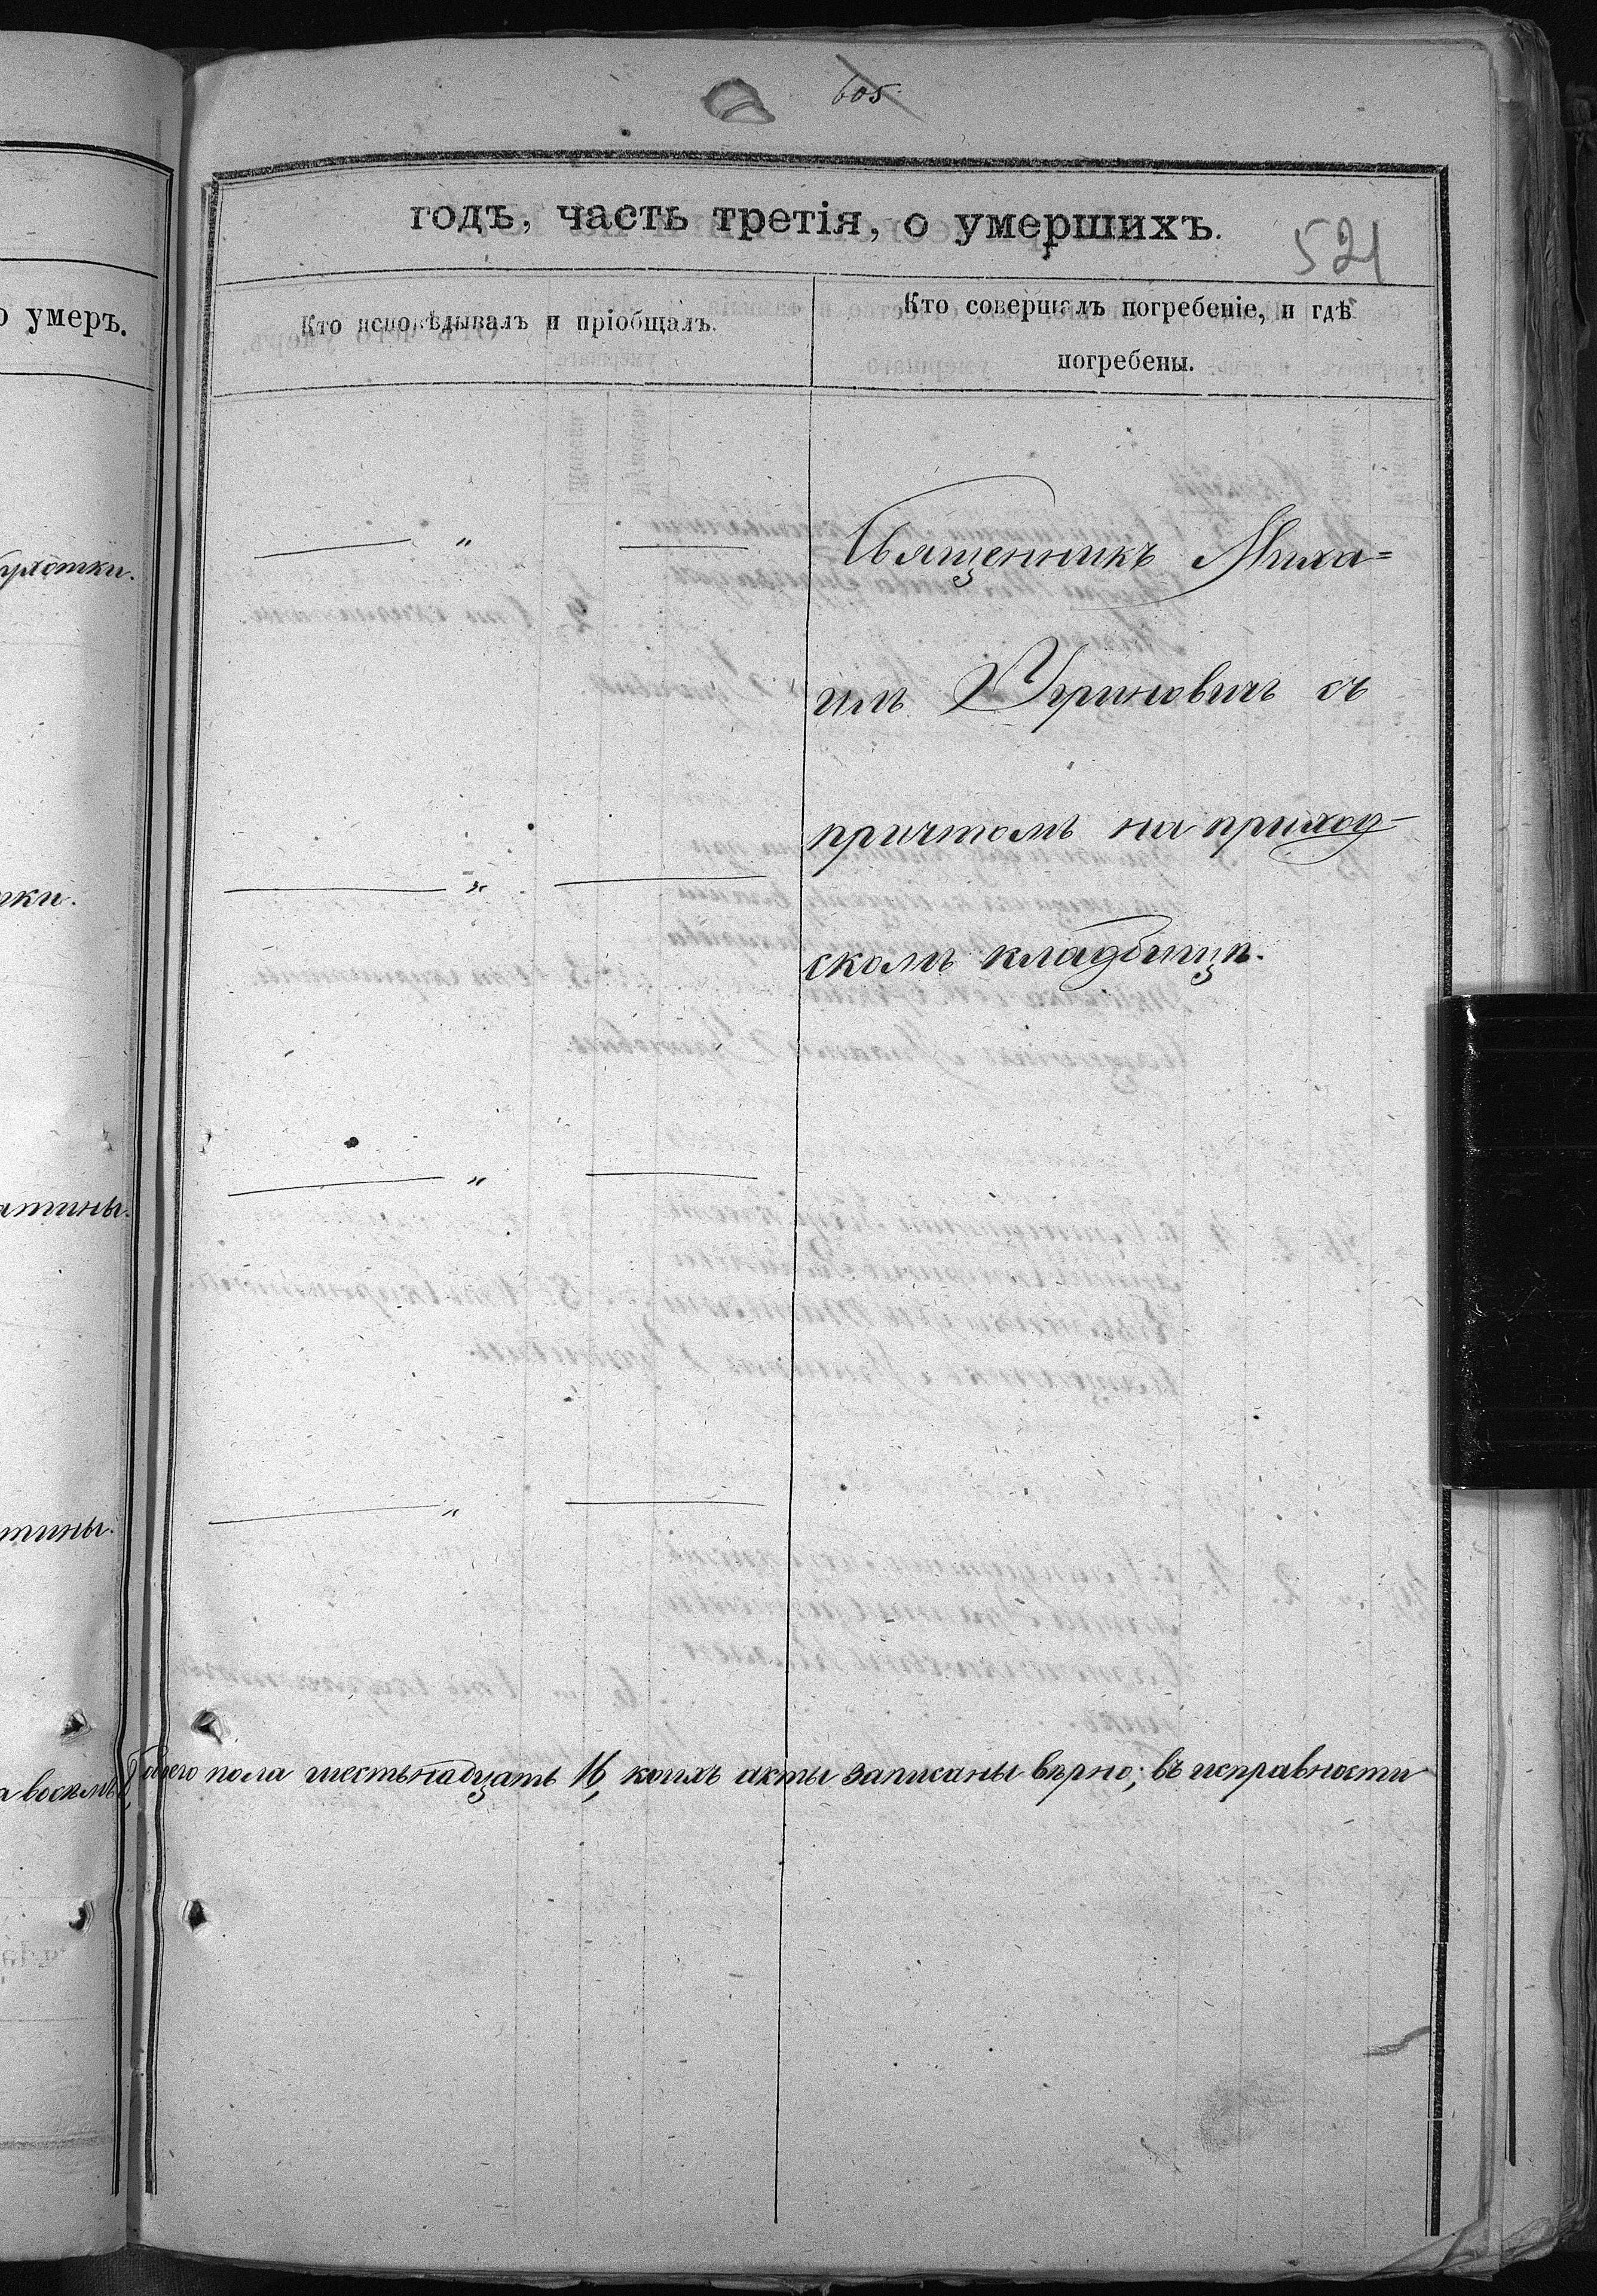 605
годъ, часть третія, о умершихъ.
521
о умеръ.
Кто исповѣдывалъ и пріобщалъ.
Кто совершалъ погребеніе, и гдѣ
погребены.
Священникъ Миха=
илъ Угриновичъ съ
причтомъ на приход-
скомъ кладбищѣ.
"
"
"
"
а восемь 8, обоего пола шестьнадцать 16, коихъ акты записаны вѣрно; въ исправности